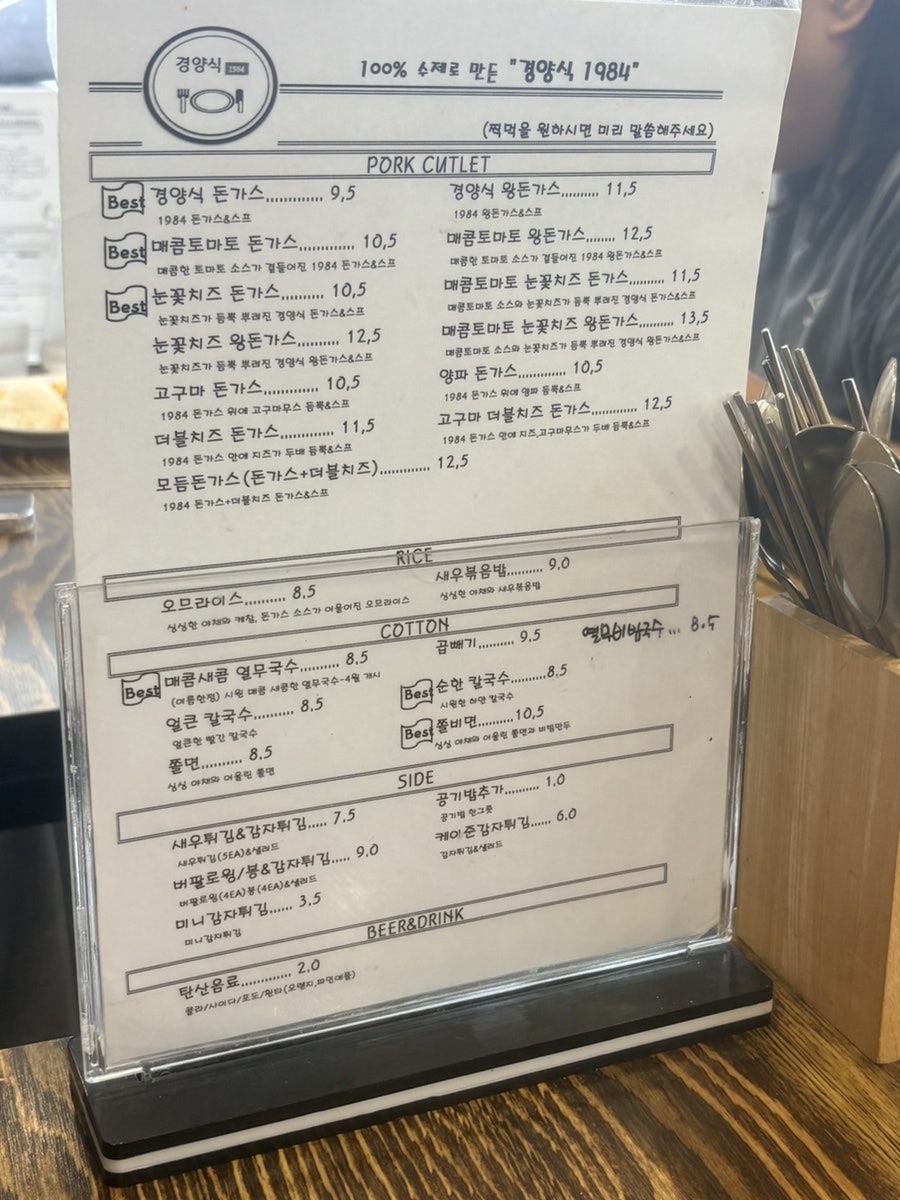 경양식 1984
100% 수제로 만든 "경양식 1984"
(찍먹을 원하시면 미리 말씀해주세요)
PORK CUTLET
Best 경양식 돈가스............. 9,5
1984 돈가스&스프
Best 매콤토마토 돈가스............. 10,5
매콤한 토마토 소스가 곁들어진 1984 돈가스&스프
Best 눈꽃치즈 돈가스............. 10,5
눈꽃치즈가 듬뿍 뿌려진 경양식 돈가스&스프
눈꽃치즈 왕돈가스............. 12,5
눈꽃치즈가 듬뿍 뿌려진 경양식 왕돈가스&스프
고구마 돈가스............. 10,5
1984 돈가스 위에 고구마무스 듬뿍&스프
더블치즈 돈가스............. 11,5
1984 돈가스 안에 치즈가 두배 듬뿍&스프
모듬돈가스(돈가스+더블치즈)............ 12,5
1984 돈가스+더블치즈 돈가스&스프
경양식 왕돈가스.......... 11,5
1984 왕돈가스&스프
매콤토마토 왕돈가스........ 12,5
매콤한 토마토 소스가 곁들어진 1984 왕돈가스&스프
매콤토마토 눈꽃치즈 돈가스.......... 11,5
매콤토마토 소스와 눈꽃치즈가 듬뿍 뿌려진 경양식 돈가스&스프
매콤토마토 눈꽃치즈 왕돈가스.......... 13,5
매콤토마토 소스와 눈꽃치즈가 듬뿍 뿌려진 경양식 왕돈가스&스프
양파 돈가스............. 10,5
1984 돈가스 위에 양파 듬뿍&스프
고구마 더블치즈 돈가스............. 12,5
1984 돈가스 안에 치즈,고구마무스가 두배 듬뿍&스프
RICE
오므라이스.......... 8,5
싱싱한 야채와 케찹, 돈가스 소스가 어울어진 오므라이스
새우볶음밥.......... 9,0
싱싱한 야채와 새우볶음밥
COTTON
Best 매콤새콤 열무국수.......... 8,5
(여름한정) 시원 매콤 새콤한 열무국수-4월 개시
얼큰 칼국수.......... 8,5
얼큰한 빨간 칼국수
쫄면.......... 8,5
싱싱 야채와 어울린 쫄면
곱빼기.......... 9,5
열무비빔국수... 8.5
Best 순한 칼국수..........8,5
시원한 하얀 칼국수
Best 쫄비면..........10,5
싱싱 야채와 어울린 쫄면과 비빔만두
SIDE
새우튀김&감자튀김..... 7,5
새우튀김(5EA)&샐러드
버팔로윙/봉&감자튀김..... 9,0
버팔로윙(4EA)봉(4EA)&샐러드
미니감자튀김...... 3,5
미니감자튀김
공기밥추가.......... 1,0
공기밥 한그릇
케이준감자튀김...... 6,0
감자튀김&샐러드
BEER&DRINK
탄산음료............. 2,0
콜라/사이다/포도/환타(오랜지,파인애플)